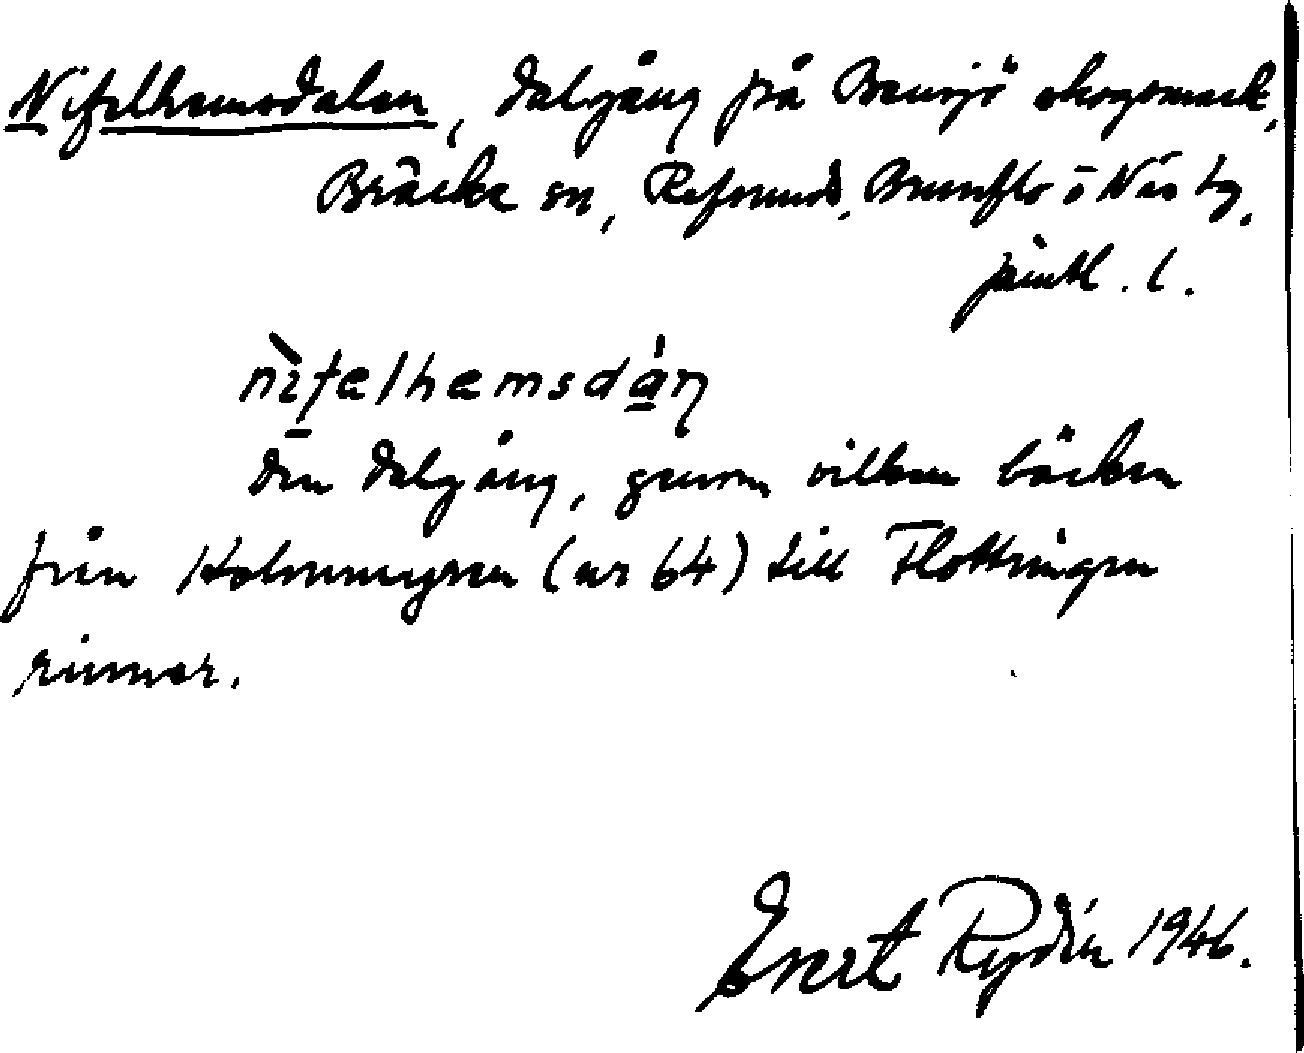 Nifelhemsdalen, dalgång på Bensjö skogsmark,
Bräcke sn, Refsunds, Brunflo o Näs tg,
Jämtl. l.
nìfelhemsdáɳ
den dalgång, genom vilken bäcken
från Holmmyren (nr 64) till Flottringen
rinner.
Evert Rydén 1946.